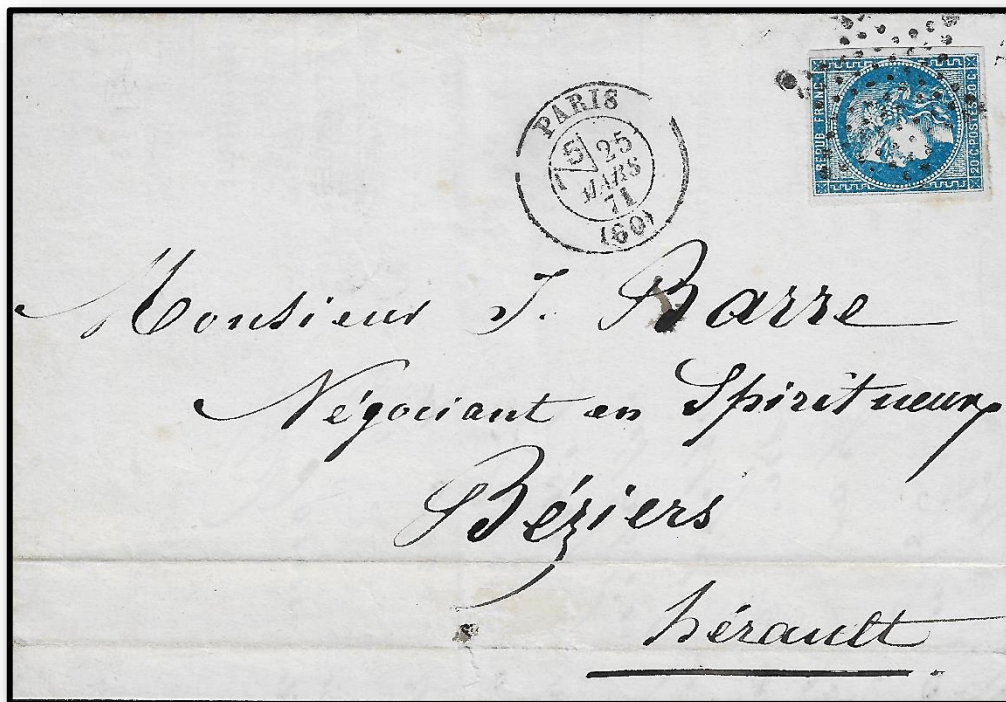 PARIS
5
25
MARS
71
(60)
REPUB. FRANC.
20 C · POSTES · 20 C
Monsieur J. Barre
Négociant en Spiritueux
Béziers
hérault